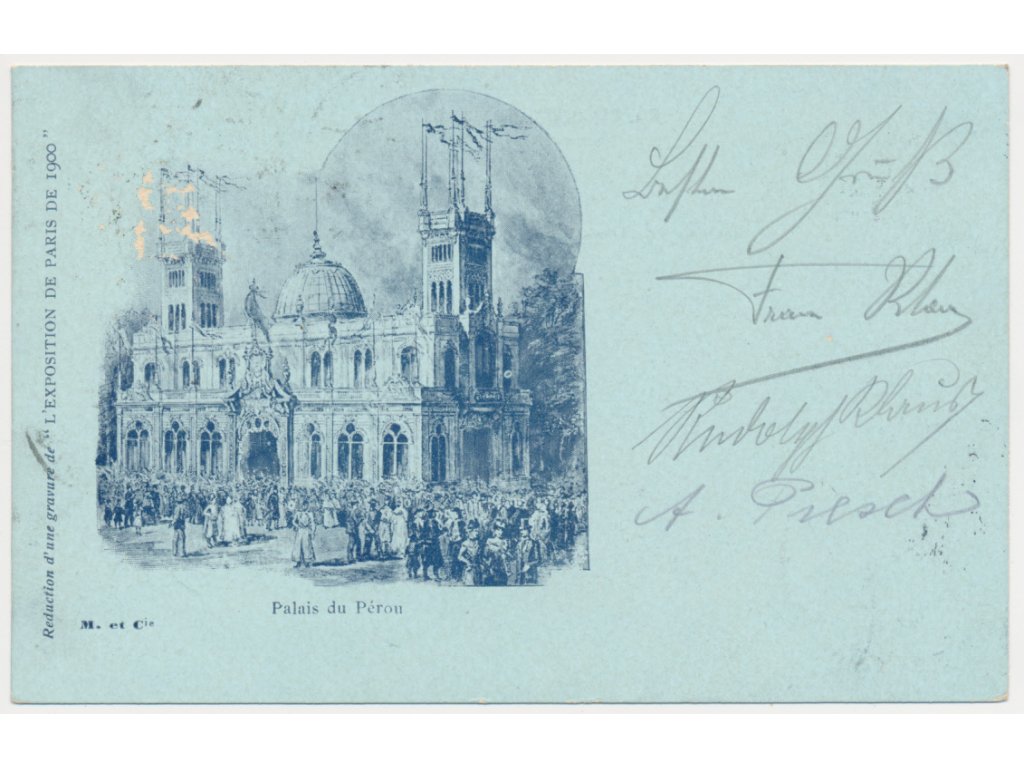 Reduction d'une gravure de "L'EXPOSITION DE PARIS DE 1900"
Palais du Pérou
M. et Cie
Besten Gruß
Franz
Rudolph Klaus
A. Piesch